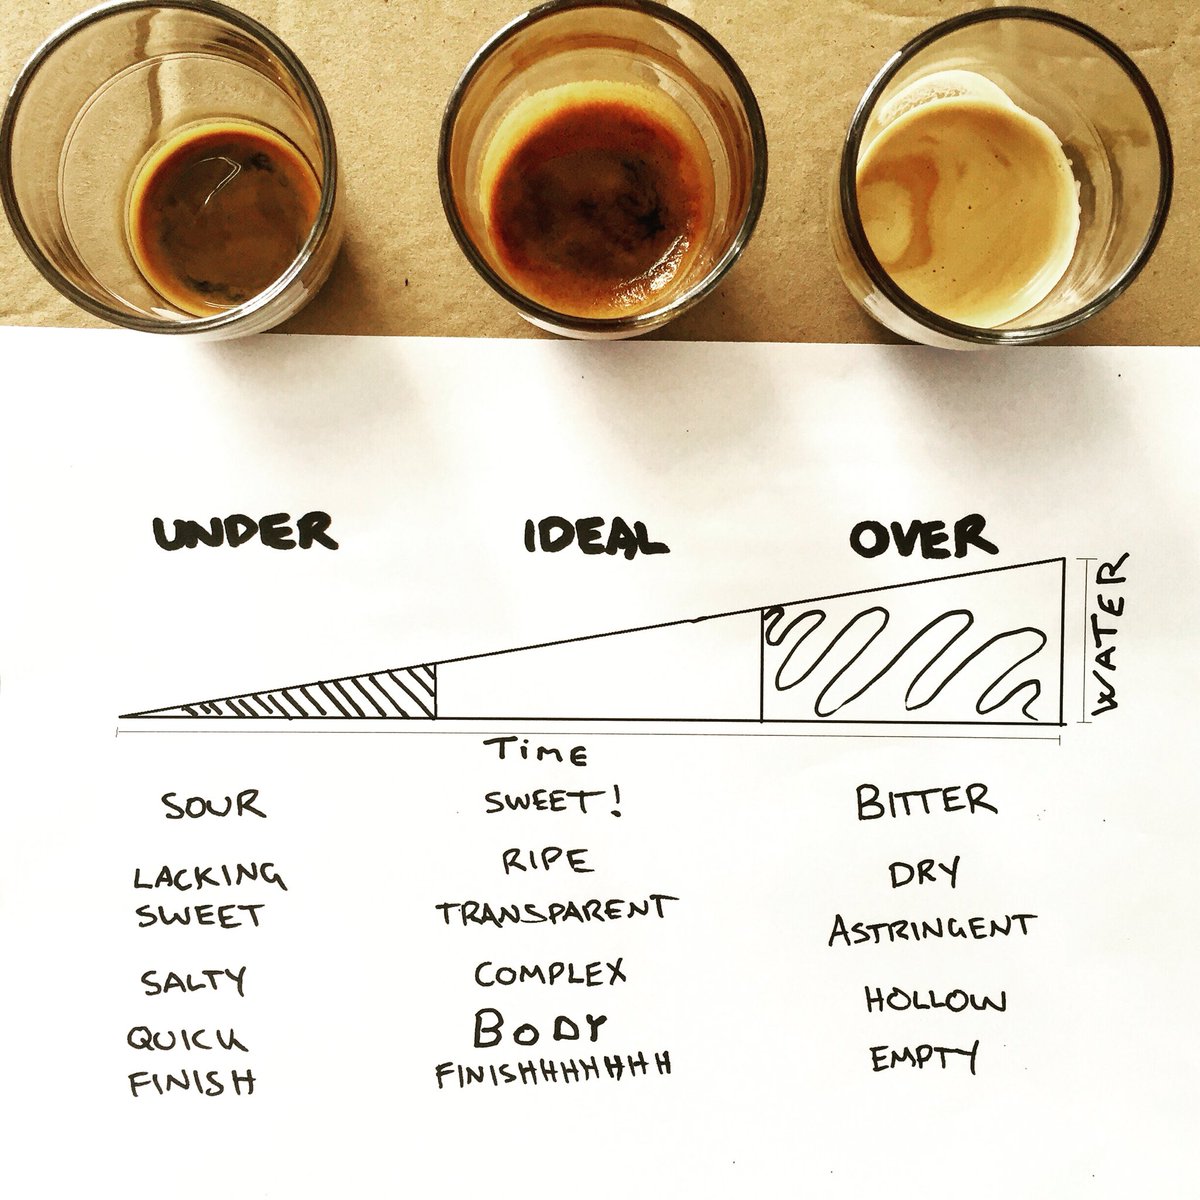 UNDER
IDEAL
OVER
WATER
TIME
SOUR
LACKING
SWEET
SALTY
QUICK
FINISH
SWEET!
RIPE
TRANSPARENT
COMPLEX
BODY
FINISHHHHHHH
BITTER
DRY
ASTRINGENT
HOLLOW
EMPTY